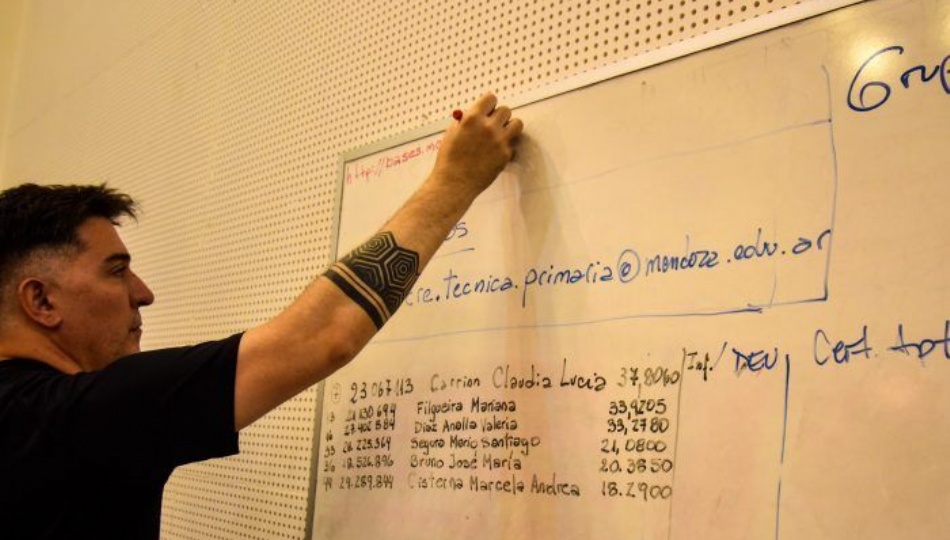 Grup
http://bases.me
os
cre.tecnica.primaria@mendoza.edu.ar
Inf. / DEU, Cert. Apt
23 067 113 Carrion Claudia Lucia 37,8060
Filgueira Mariana 33,9205
Diaz Analia Valeria 33,2780
33 26.225.569 Segura Mario Santiago 21,0800
36 18.526.896 Bruno José María 20.3850
44 29.289.844 Cisterna Marcela Andrea 18.2900